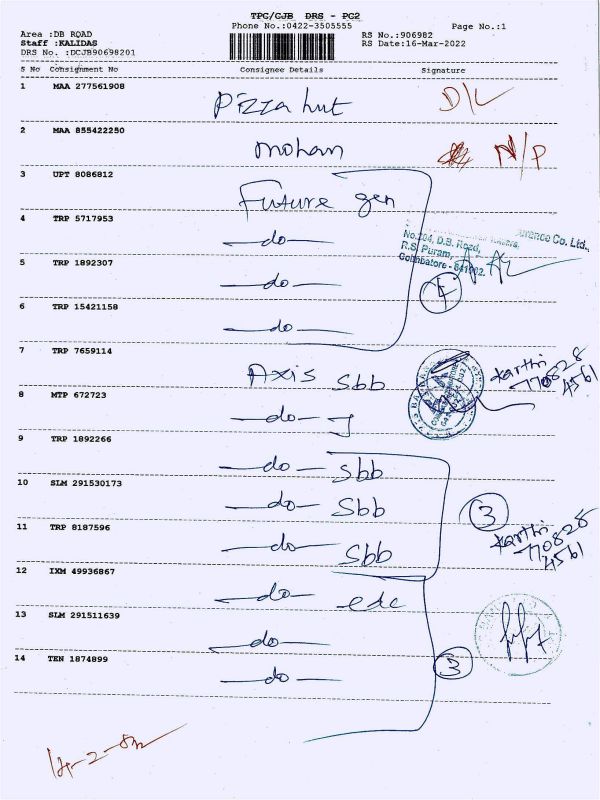 TPC/CJB DRS - PC2
Phone No.:0422-3505555 Page No.:1
Area :DB ROAD RS No.:906982
Staff :KALIDAS RS Date:16-Mar-2022
DRS No. :DCJB90698201
S No Consignment No Consignee Details Signature
1 MAA 277561908 Pizza hut D/L
2 MAA 855422250 mohan N/P
3 UPT 8086812 Future gen
4 TRP 5717953 -do-
No.204, D.B. Road,
R.S. Puram,
Coimbatore - 641002.
urance Co. Ltd.,
5 TRP 1892307 -do-
4
6 TRP 15421158 -do-
7 TRP 7659114 Axis Sbb
Karthi
770828
4561
8 MTP 672723 -do-
9 TRP 1892266 -do- Sbb
10 SLM 291530173 -do- Sbb
3
11 TRP 8187596 -do- Sbb
Karthi
770828
4561
12 IXM 49936867 -do- edc
13 SLM 291511639 -do-
14 TEN 1874899 -do-
3